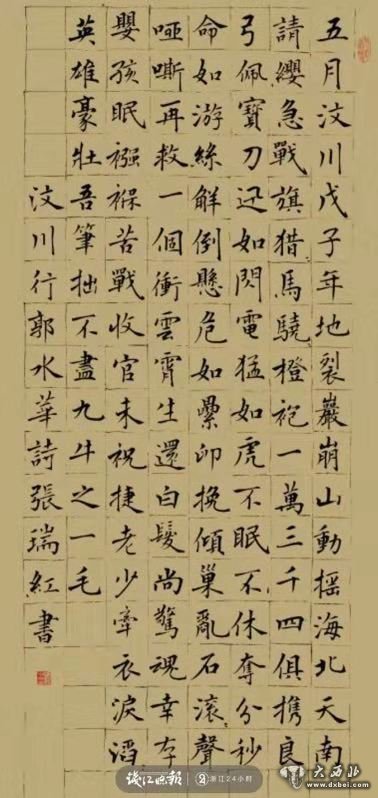 五月汶川戊子年地裂巖崩山動搖海北天南
請纓急戰旗猎馬驍橙袍一萬三千四俱携良
弓佩寶刀迅如閃電猛如虎不眠不休奪分秒
命如游絲解倒懸危如纍卵挽傾巢亂石滾聲
啞嘶再救一個衝雲霄生還白髮尚驚魂幸存
嬰孩眠襁褓苦戰收官未祝捷老少牽衣淚滔
英雄豪壯吾筆拙不盡九牛之一毛
汶川行郭水華詩張瑞紅書
錢江晚報 浙江24小时
大西北
www.dxbei.com